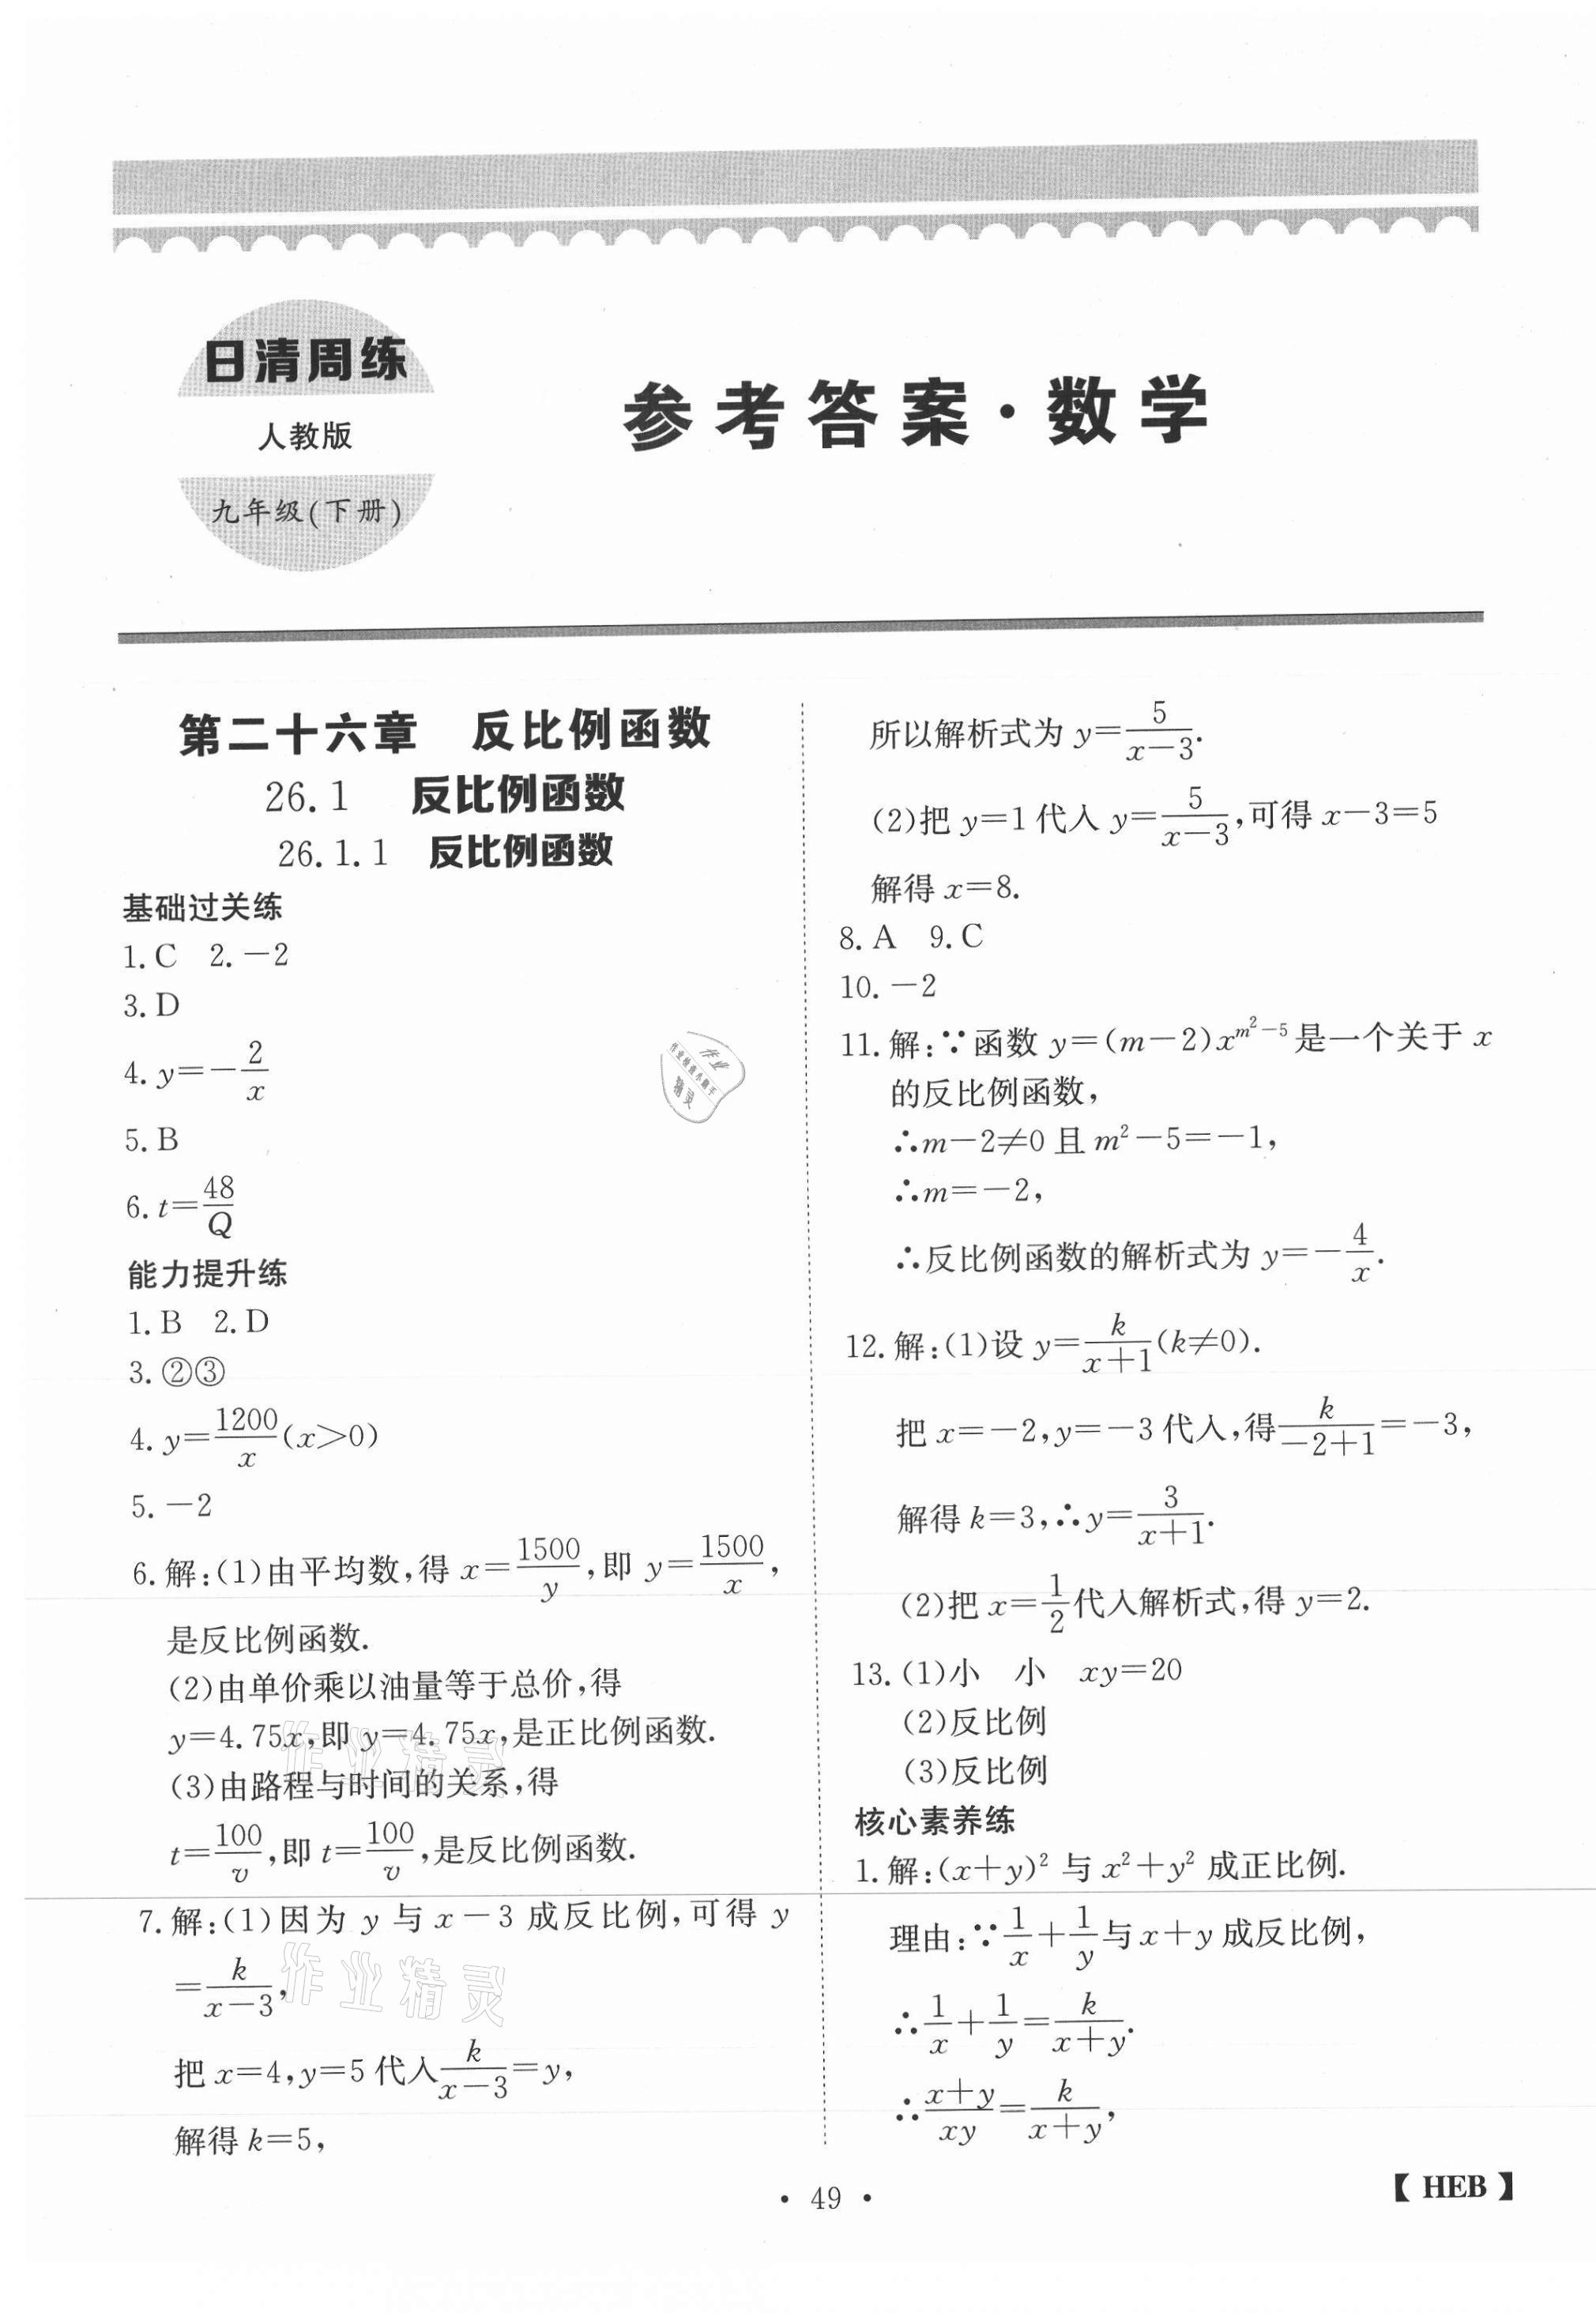 日清周练
人教版
九年级(下册)
参考答案·数学
第二十六章 反比例函数
26.1 反比例函数
26.1.1 反比例函数
基础过关练
1.C 2.－2
3.D
4.y=－2/x
5.B
6.t=48/Q
能力提升练
1.B 2.D
3.②③
4.y=1200/x(x>0)
5.－2
6.解:(1)由平均数,得 x=1500/y,即 y=1500/x,
是反比例函数.
(2)由单价乘以油量等于总价,得
y=4.75x,即 y=4.75x,是正比例函数.
(3)由路程与时间的关系,得
t=100/v,即 t=100/v,是反比例函数.
7.解:(1)因为 y 与 x－3 成反比例,可得 y
=k/(x－3),
把 x=4,y=5 代入 k/(x－3)=y,
解得 k=5,
所以解析式为 y=5/(x－3).
(2)把 y=1 代入 y=5/(x－3),可得 x－3=5
解得 x=8.
8.A 9.C
10.－2
11.解:∵函数 y=(m－2)x^(m²－5)是一个关于 x
的反比例函数,
∴m－2≠0 且 m²－5=－1,
∴m=－2,
∴反比例函数的解析式为 y=－4/x.
12.解:(1)设 y=k/(x+1)(k≠0).
把 x=－2,y=－3 代入,得 k/(－2+1)=－3,
解得 k=3,∴y=3/(x+1).
(2)把 x=1/2 代入解析式,得 y=2.
13.(1)小 小 xy=20
(2)反比例
(3)反比例
核心素养练
1.解:(x+y)² 与 x²+y² 成正比例.
理由:∵1/x+1/y 与 x+y 成反比例,
∴1/x+1/y=k/(x+y).
∴(x+y)/xy=k/(x+y),
• 49 •
【HEB】
作业
作业检查小助手
精灵
作业精灵
作业精灵